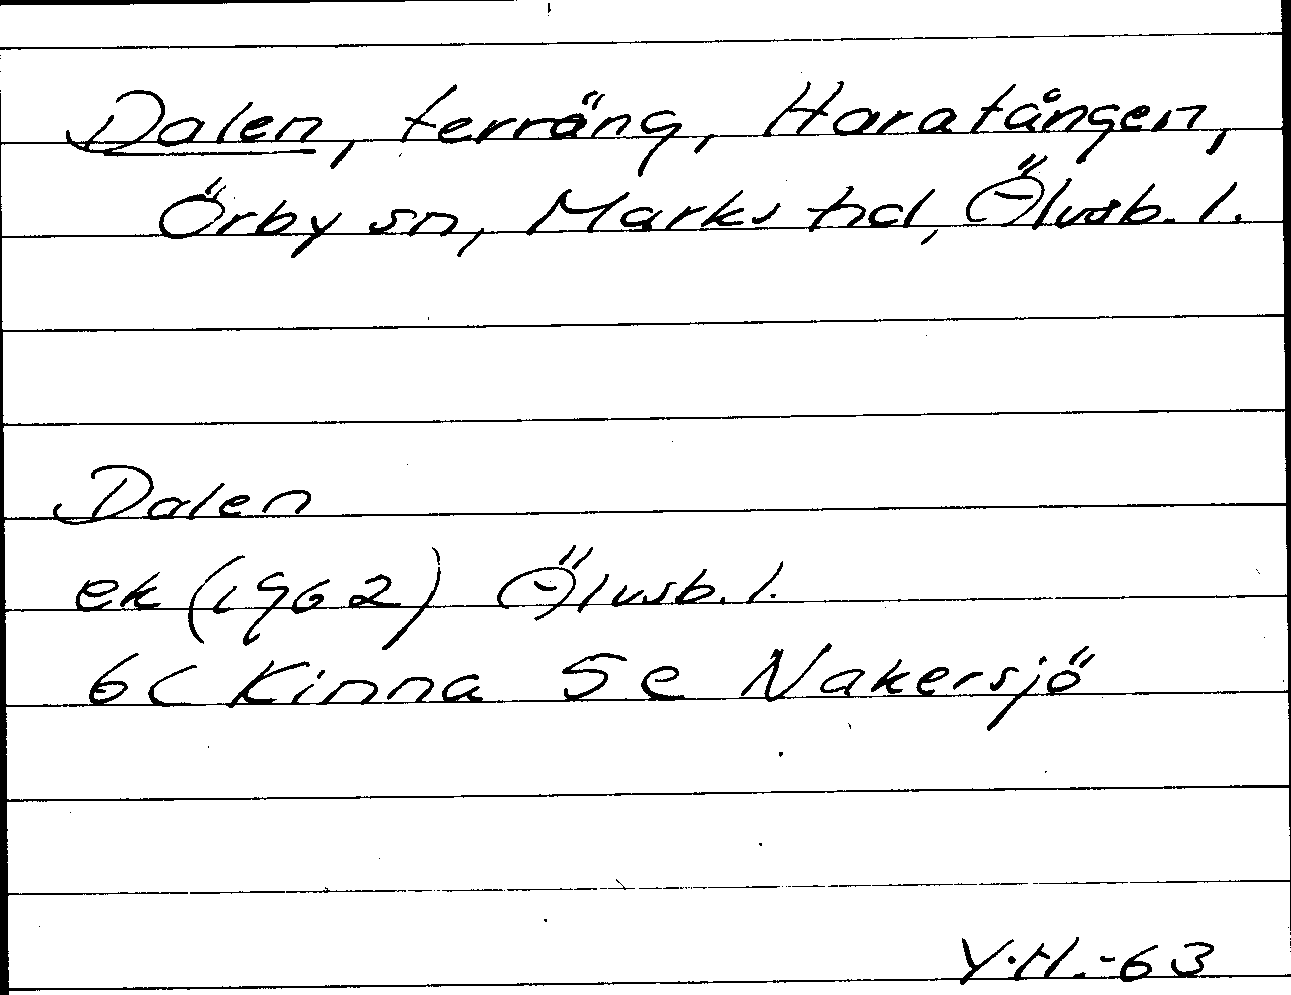 Dalen, terräng, Haratången,
Örby sn, Marks hd, Älvsb. l.
Dalen
ek (1962) Älvsb. l.
6C Kinna 5e Nakersjö
Y.H.-63